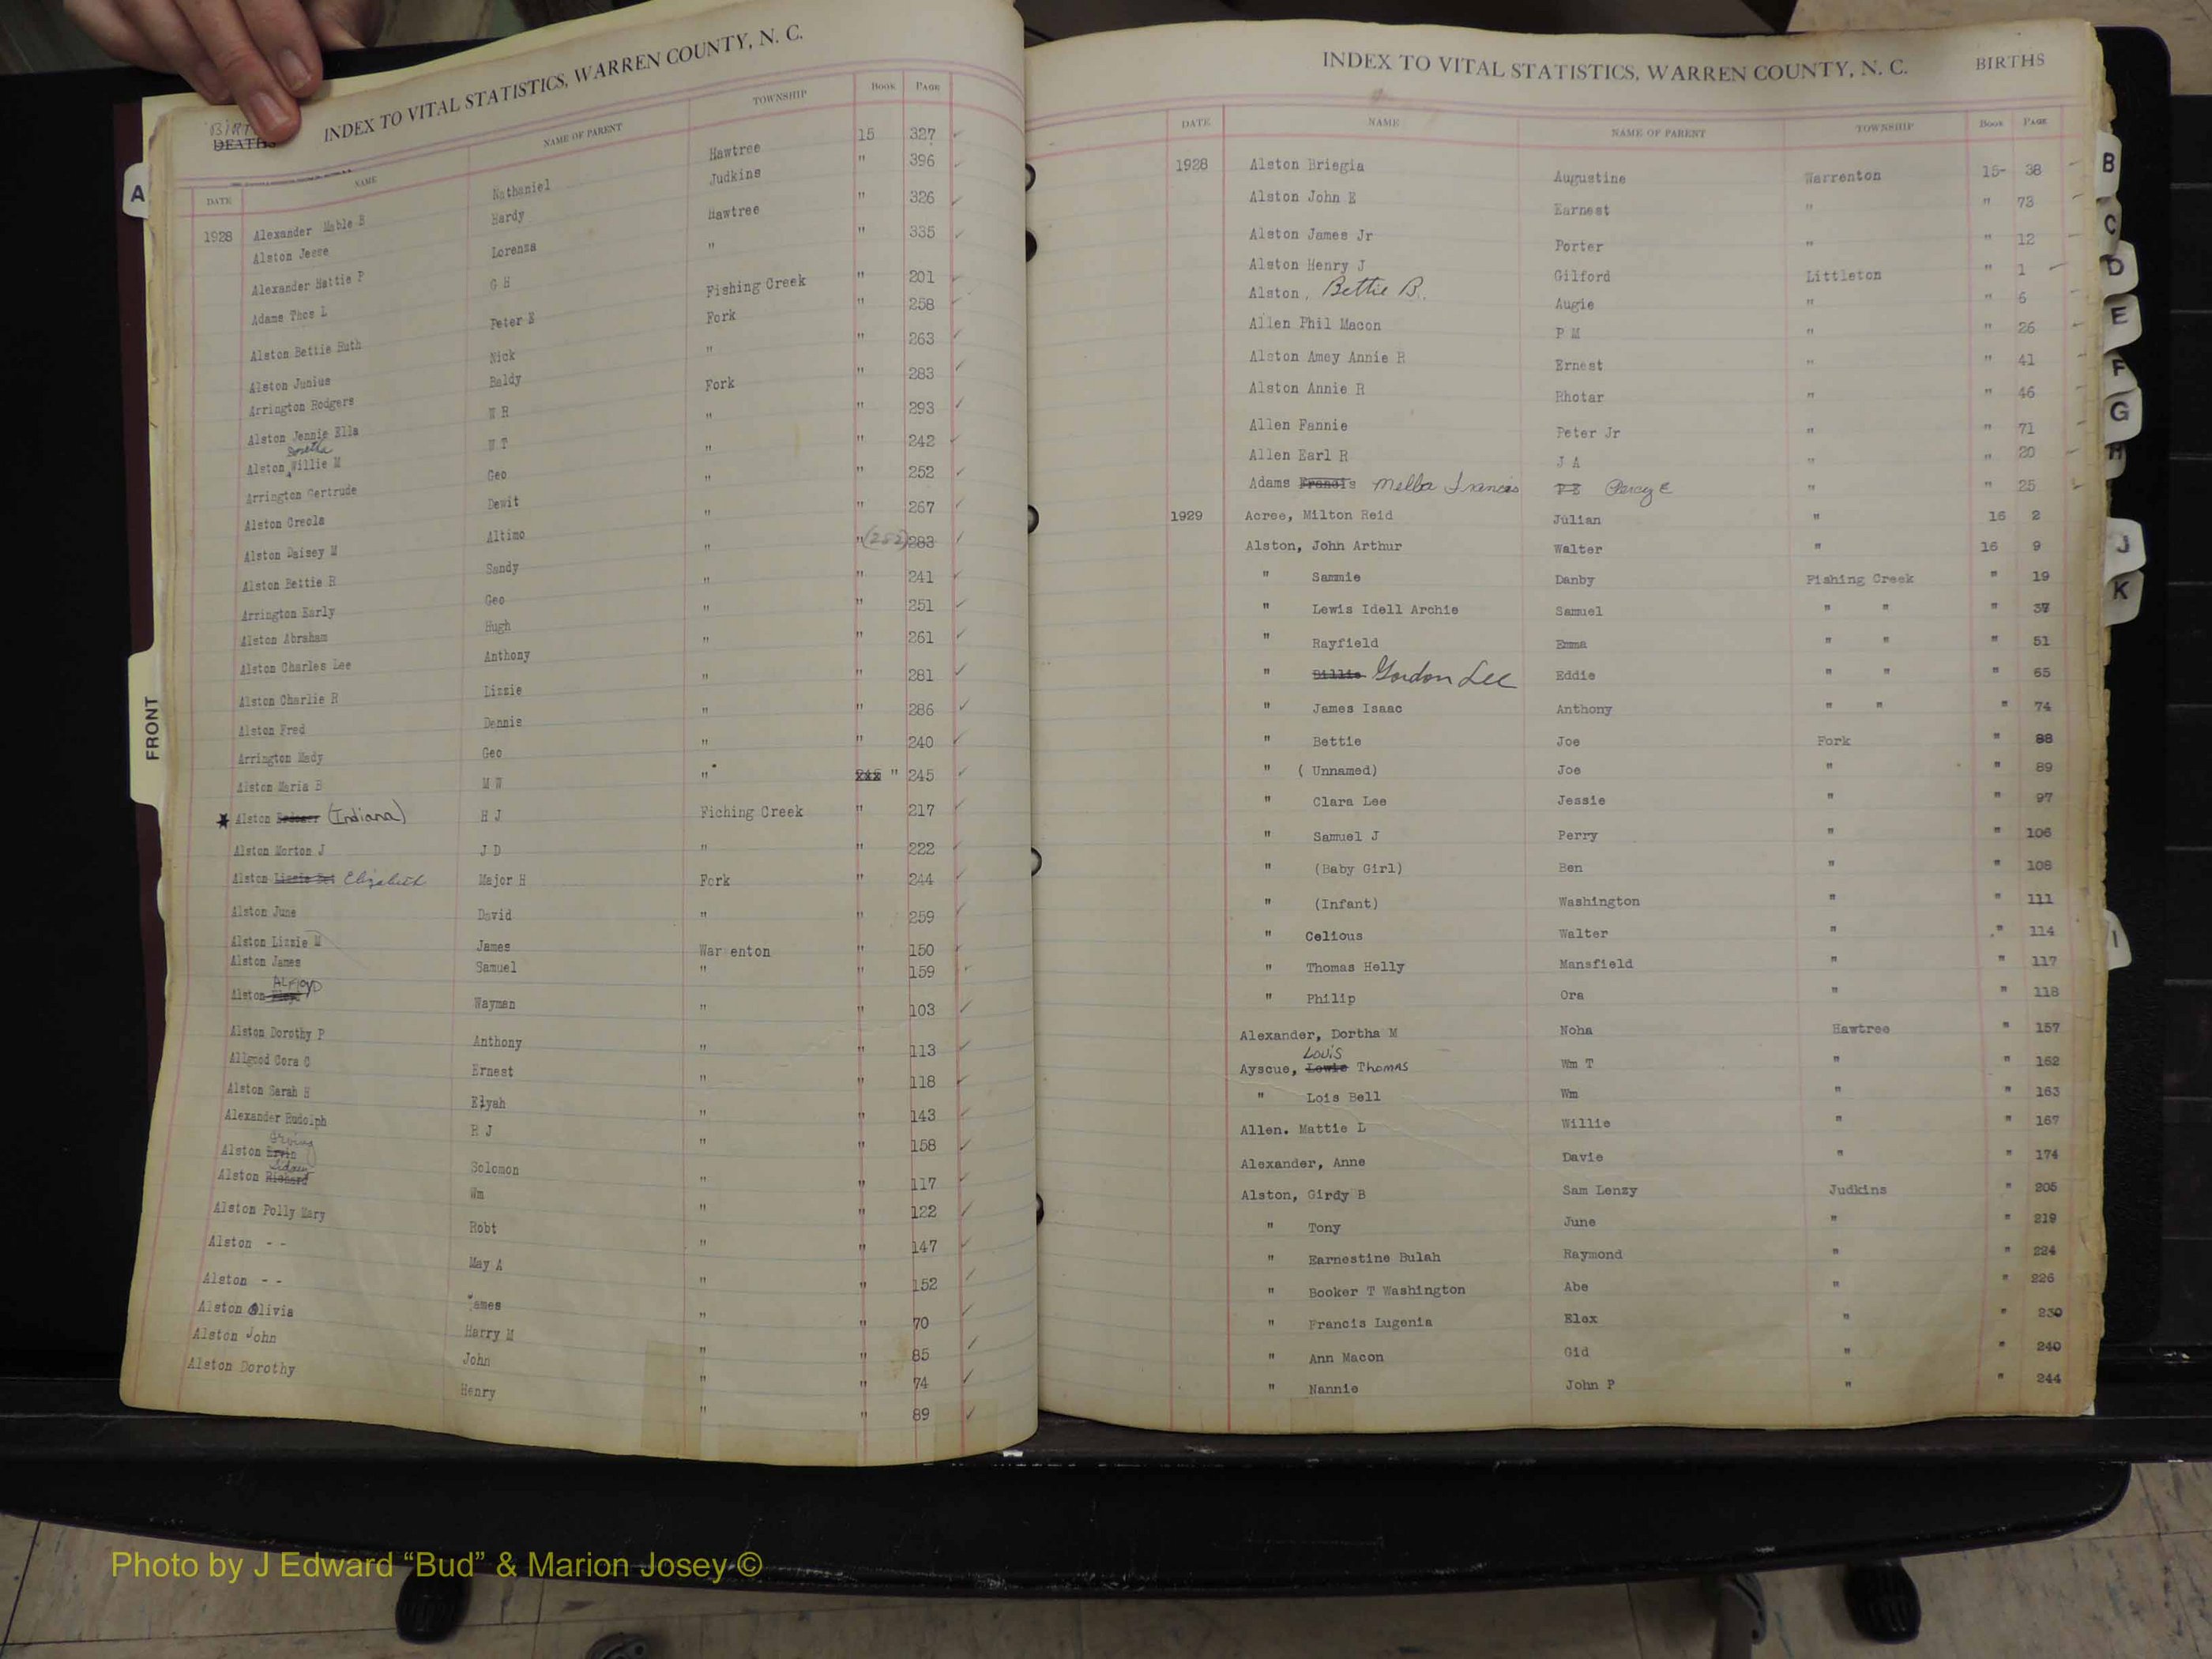 INDEX TO VITAL STATISTICS, WARREN COUNTY, N. C.
BIRT
DEATHS
DATE NAME NAME OF PARENT TOWNSHIP BOOK PAGE
1928 Alexander Mable B Nathaniel Hawtree 15 327
Alston Jesse Hardy Judkins " 396
Alexander Hattie P Lorenza Hawtree " 326
Adams Thos L G H " " 335
Alston Bettie Ruth Peter E Fishing Creek " 201
Alston Junius Nick Fork " 258
Arrington Rodgers Baldy " " 263
Alston Jennie Ella W R Fork " 283
Alston Willie M W T " " 293
Arrington Gertrude Geo " " 242
Alston Creola Dewit " " 252
Alston Daisey M Altimo " " 267
Alston Bettie R Sandy " " (282) 283
Arrington Early Geo " " 241
Alston Abraham Hugh " " 251
Alston Charles Lee Anthony " " 261
Alston Charlie R Lizzie " " 281
Alston Fred Dennis " " 286
Arrington Mady Geo " " 240
Alston Maria B M W " xxx " 245
Alston (Indiana) H J Fiching Creek " 217
Alston Morton J J D " " 222
Alston Elizabeth Major H Fork " 244
Alston June David " " 259
Alston Lizzie M James War enton " 150
Alston James Samuel " " 159
Alston ALFloyD Wayman " " 103
Alston Dorothy P Anthony " " 113
Allgood Cora C Ernest " " 118
Alston Sarah H Elyah " " 143
Alexander Rudolph R J " " 158
Alston Ervin Solomon " " 117
Alston Richard Wm " " 122
Alston Polly Mary Robt " " 147
Alston - - May A " " 152
Alston - - James " " 70
Alston Olivia Harry M " " 85
Alston John John " " 74
Alston Dorothy Henry " " 89
A
FRONT
INDEX TO VITAL STATISTICS, WARREN COUNTY, N. C. BIRTHS
DATE NAME NAME OF PARENT TOWNSHIP BOOK PAGE
1928 Alston Briegia Augustine Warrenton 15- 38
Alston John E Earnest " " 73
Alston James Jr Porter " " 12
Alston Henry J Gilford Littleton " 1
Alston, Bettie B. Augie " " 6
Allen Phil Macon P M " " 26
Alston Amey Annie R Ernest " " 41
Alston Annie R Rhotar " " 46
Allen Fannie Peter Jr " " 71
Allen Earl R J A " " 20
Adams Francis Melba Francis P E Percy E " " 25
1929 Acree, Milton Reid Julian " 16 2
Alston, John Arthur Walter " 16 9
" Sammie Danby Fishing Creek " 19
" Lewis Idell Archie Samuel " " " 37
" Rayfield Emma " " " 51
" Billie Gordon Lee Eddie " " " 65
" James Isaac Anthony " " " 74
" Bettie Joe Fork " 88
" ( Unnamed) Joe " " 89
" Clara Lee Jessie " " 97
" Samuel J Perry " " 106
" (Baby Girl) Ben " " 108
" (Infant) Washington " " 111
" Celious Walter " " 114
" Thomas Helly Mansfield " " 117
" Philip Ora " " 118
Alexander, Dortha M Noha Hawtree " 157
Ayscue, Lewis Louis Thomas Wm T " " 162
" Lois Bell Wm " " 163
Allen. Mattie L Willie " " 167
Alexander, Anne Davie " " 174
Alston, Girdy B Sam Lenzy Judkins " 205
" Tony June " " 219
" Earnestine Bulah Raymond " " 224
" Booker T Washington Abe " " 226
" Francis Lugenia Elex " " 230
" Ann Macon Gid " " 240
" Nannie John P " " 244
B
C
D
E
F
G
H
J
K
I
Photo by J Edward “Bud” & Marion Josey ©